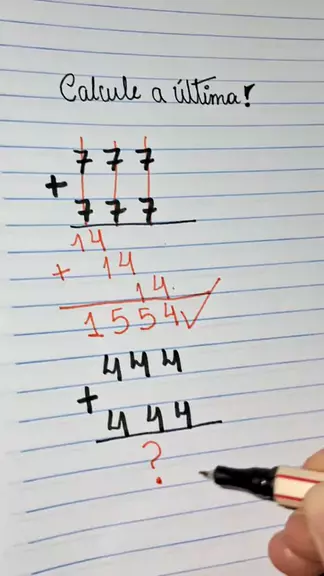 Calcule a última!
7 7 7
+
7 7 7
14
+ 14
14
1554✓
4 4 4
+
4 4 4
?